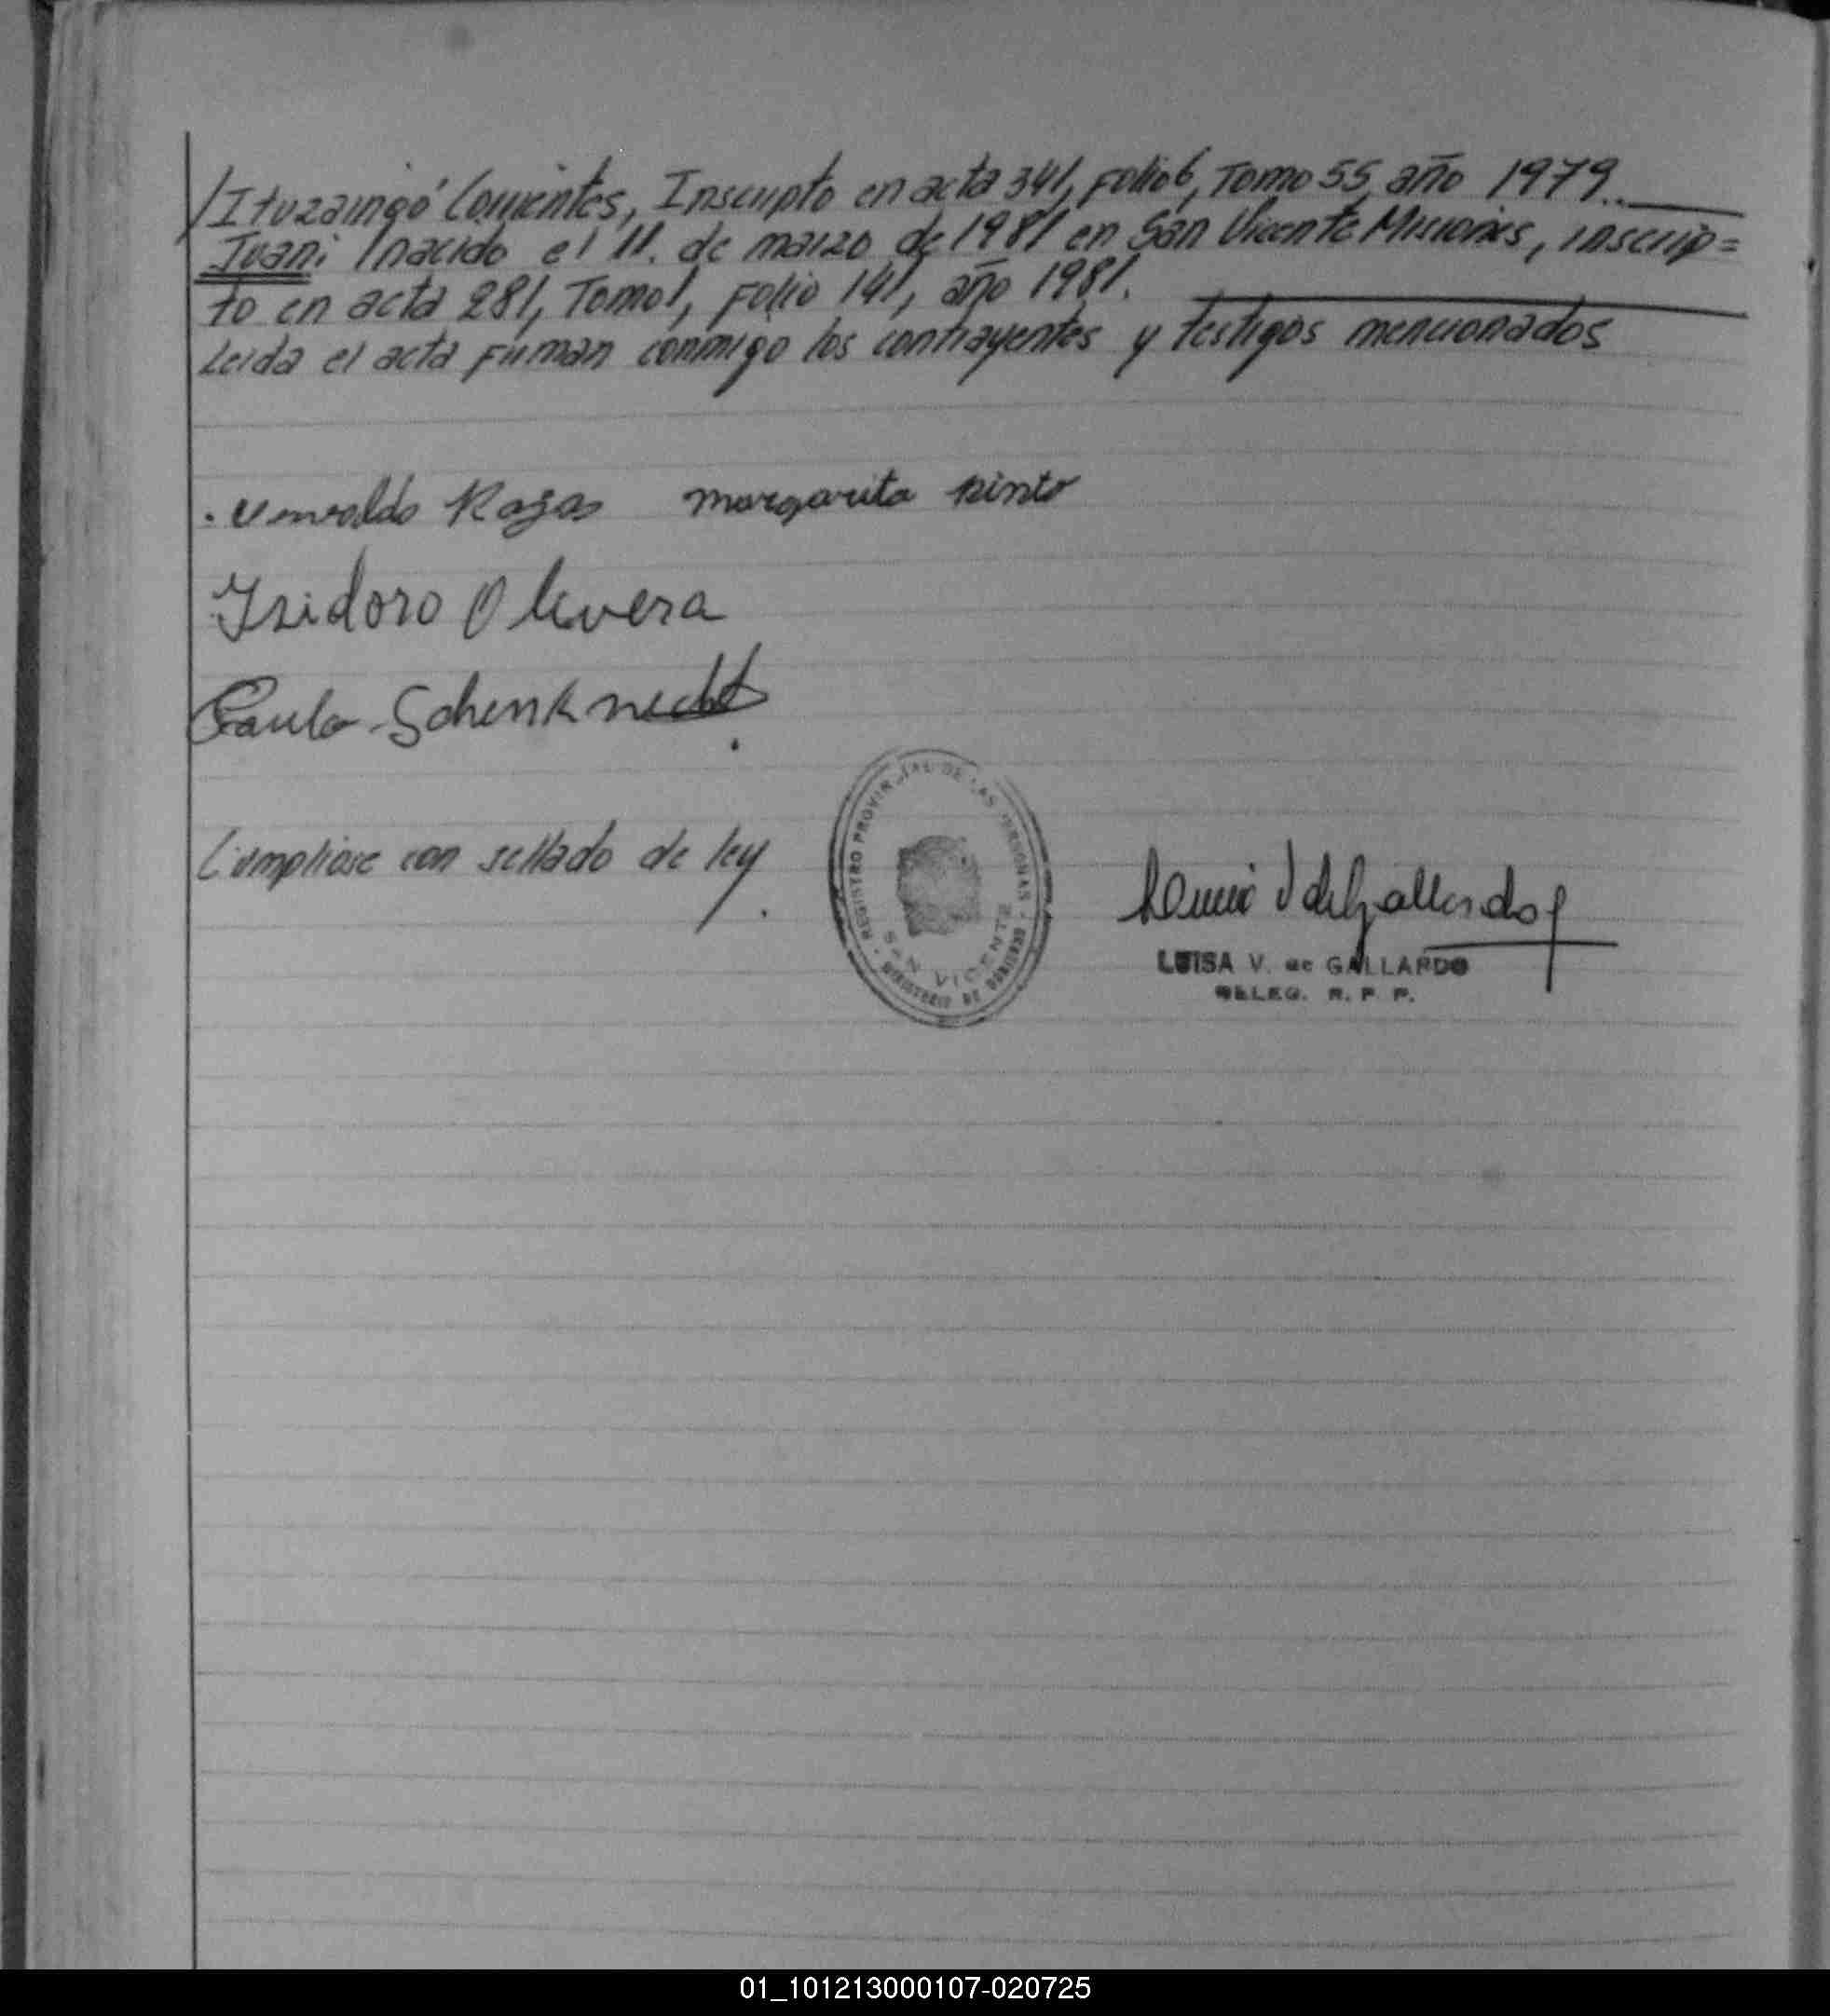 /Ituzaingó Corrientes, Inscripto en acta 341, Folio 6, Tomo 55, año 1979..
Juan: /nacido el 11. de marzo de 1981 en San Vicente Misiones, inscrip=
to en acta 281, Tomo 1, Folio 141, año 1981.
Leida el acta Firman conmigo los contrayentes y testigos mencionados
Rojas margarita pinto
Isidoro Olivera
Paulo Schenknecht
Cumpliose con sellado de ley.
REGISTRO PROVINCIAL DE LAS PERSONAS - MINISTERIO DE GOBIERNO -
SAN VICENTE
LUISA V. de GALLARDO
DELEG. R. P. P.
01_101213000107-020725